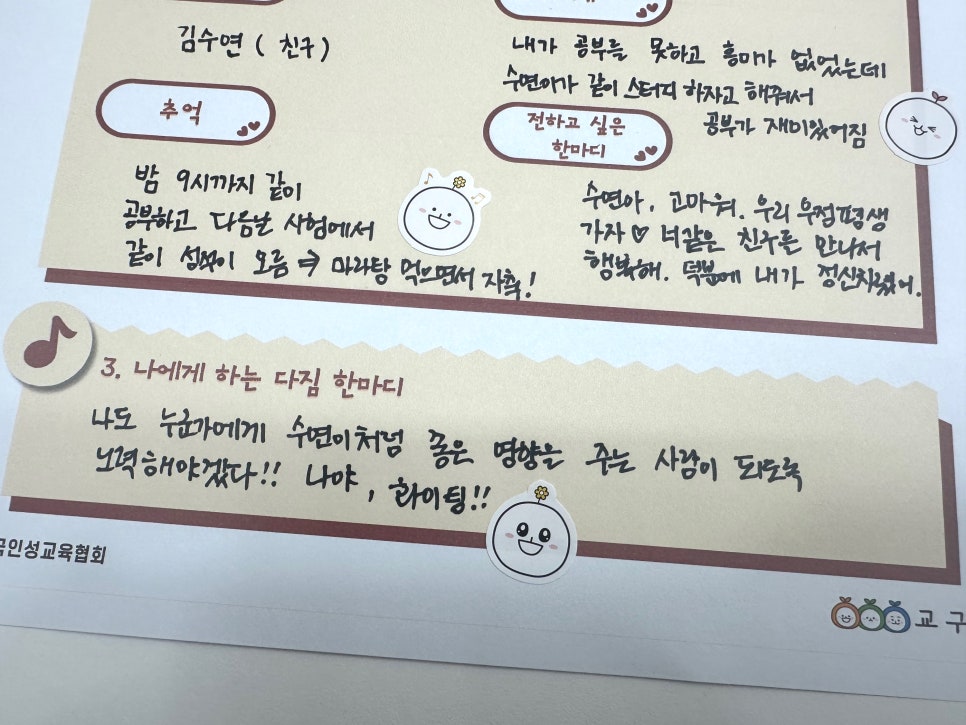 김수연 ( 친구 )
내가 공부를 못하고 흥미가 없었는데
수연이가 같이 스터디 하자고 해줘서
공부가 재미있어짐
추억
밤 9시까지 같이
공부하고 다음날 시험에서
같이 성적이 오름 ⇒ 마라탕 먹으면서 자축!
전하고 싶은
한마디
수연아, 고마워. 우리 우정평생
가자♡ 너같은 친구를 만나서
행복해. 덕분에 내가 정신차렸어.
3. 나에게 하는 다짐 한마디
나도 누군가에게 수연이처럼 좋은 영향을 주는 사람이 되도록
노력해야겠다!! 나야, 화이팅!!
인성교육협회
교구